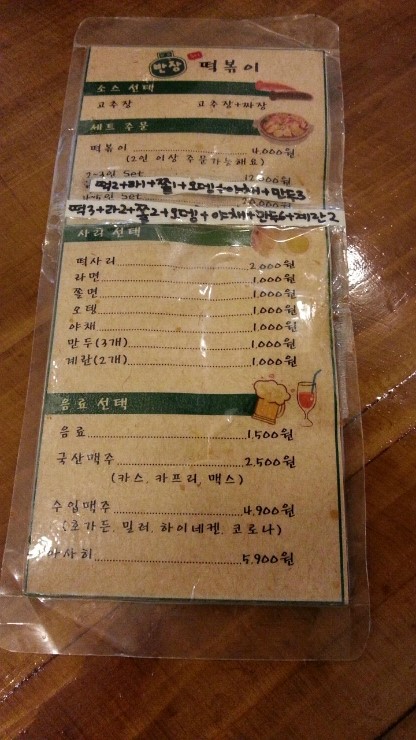 반장 떡볶이
소스 선택
고추장 고추장+짜장
세트 주문
떡볶이 4,000원
(2인 이상 주문가능해요)
2-3인 Set 12,000원
떡2+라1+쫄1+오뎅+야채+만두3
20,000원
떡3+라2+쫄2+오뎅+야채+만두6+계란2
사리 선택
떡사리 2,000원
라면 1,000원
쫄면 1,000원
오뎅 1,000원
야채 1,000원
만두(3개) 1,000원
계란(2개) 1,000원
음료 선택
음료 1,500원
국산맥주 2,500원
(카스, 카프리, 맥스)
수입맥주 4,900원
(호가든, 밀러, 하이네켄, 코로나)
아사히 5,900원